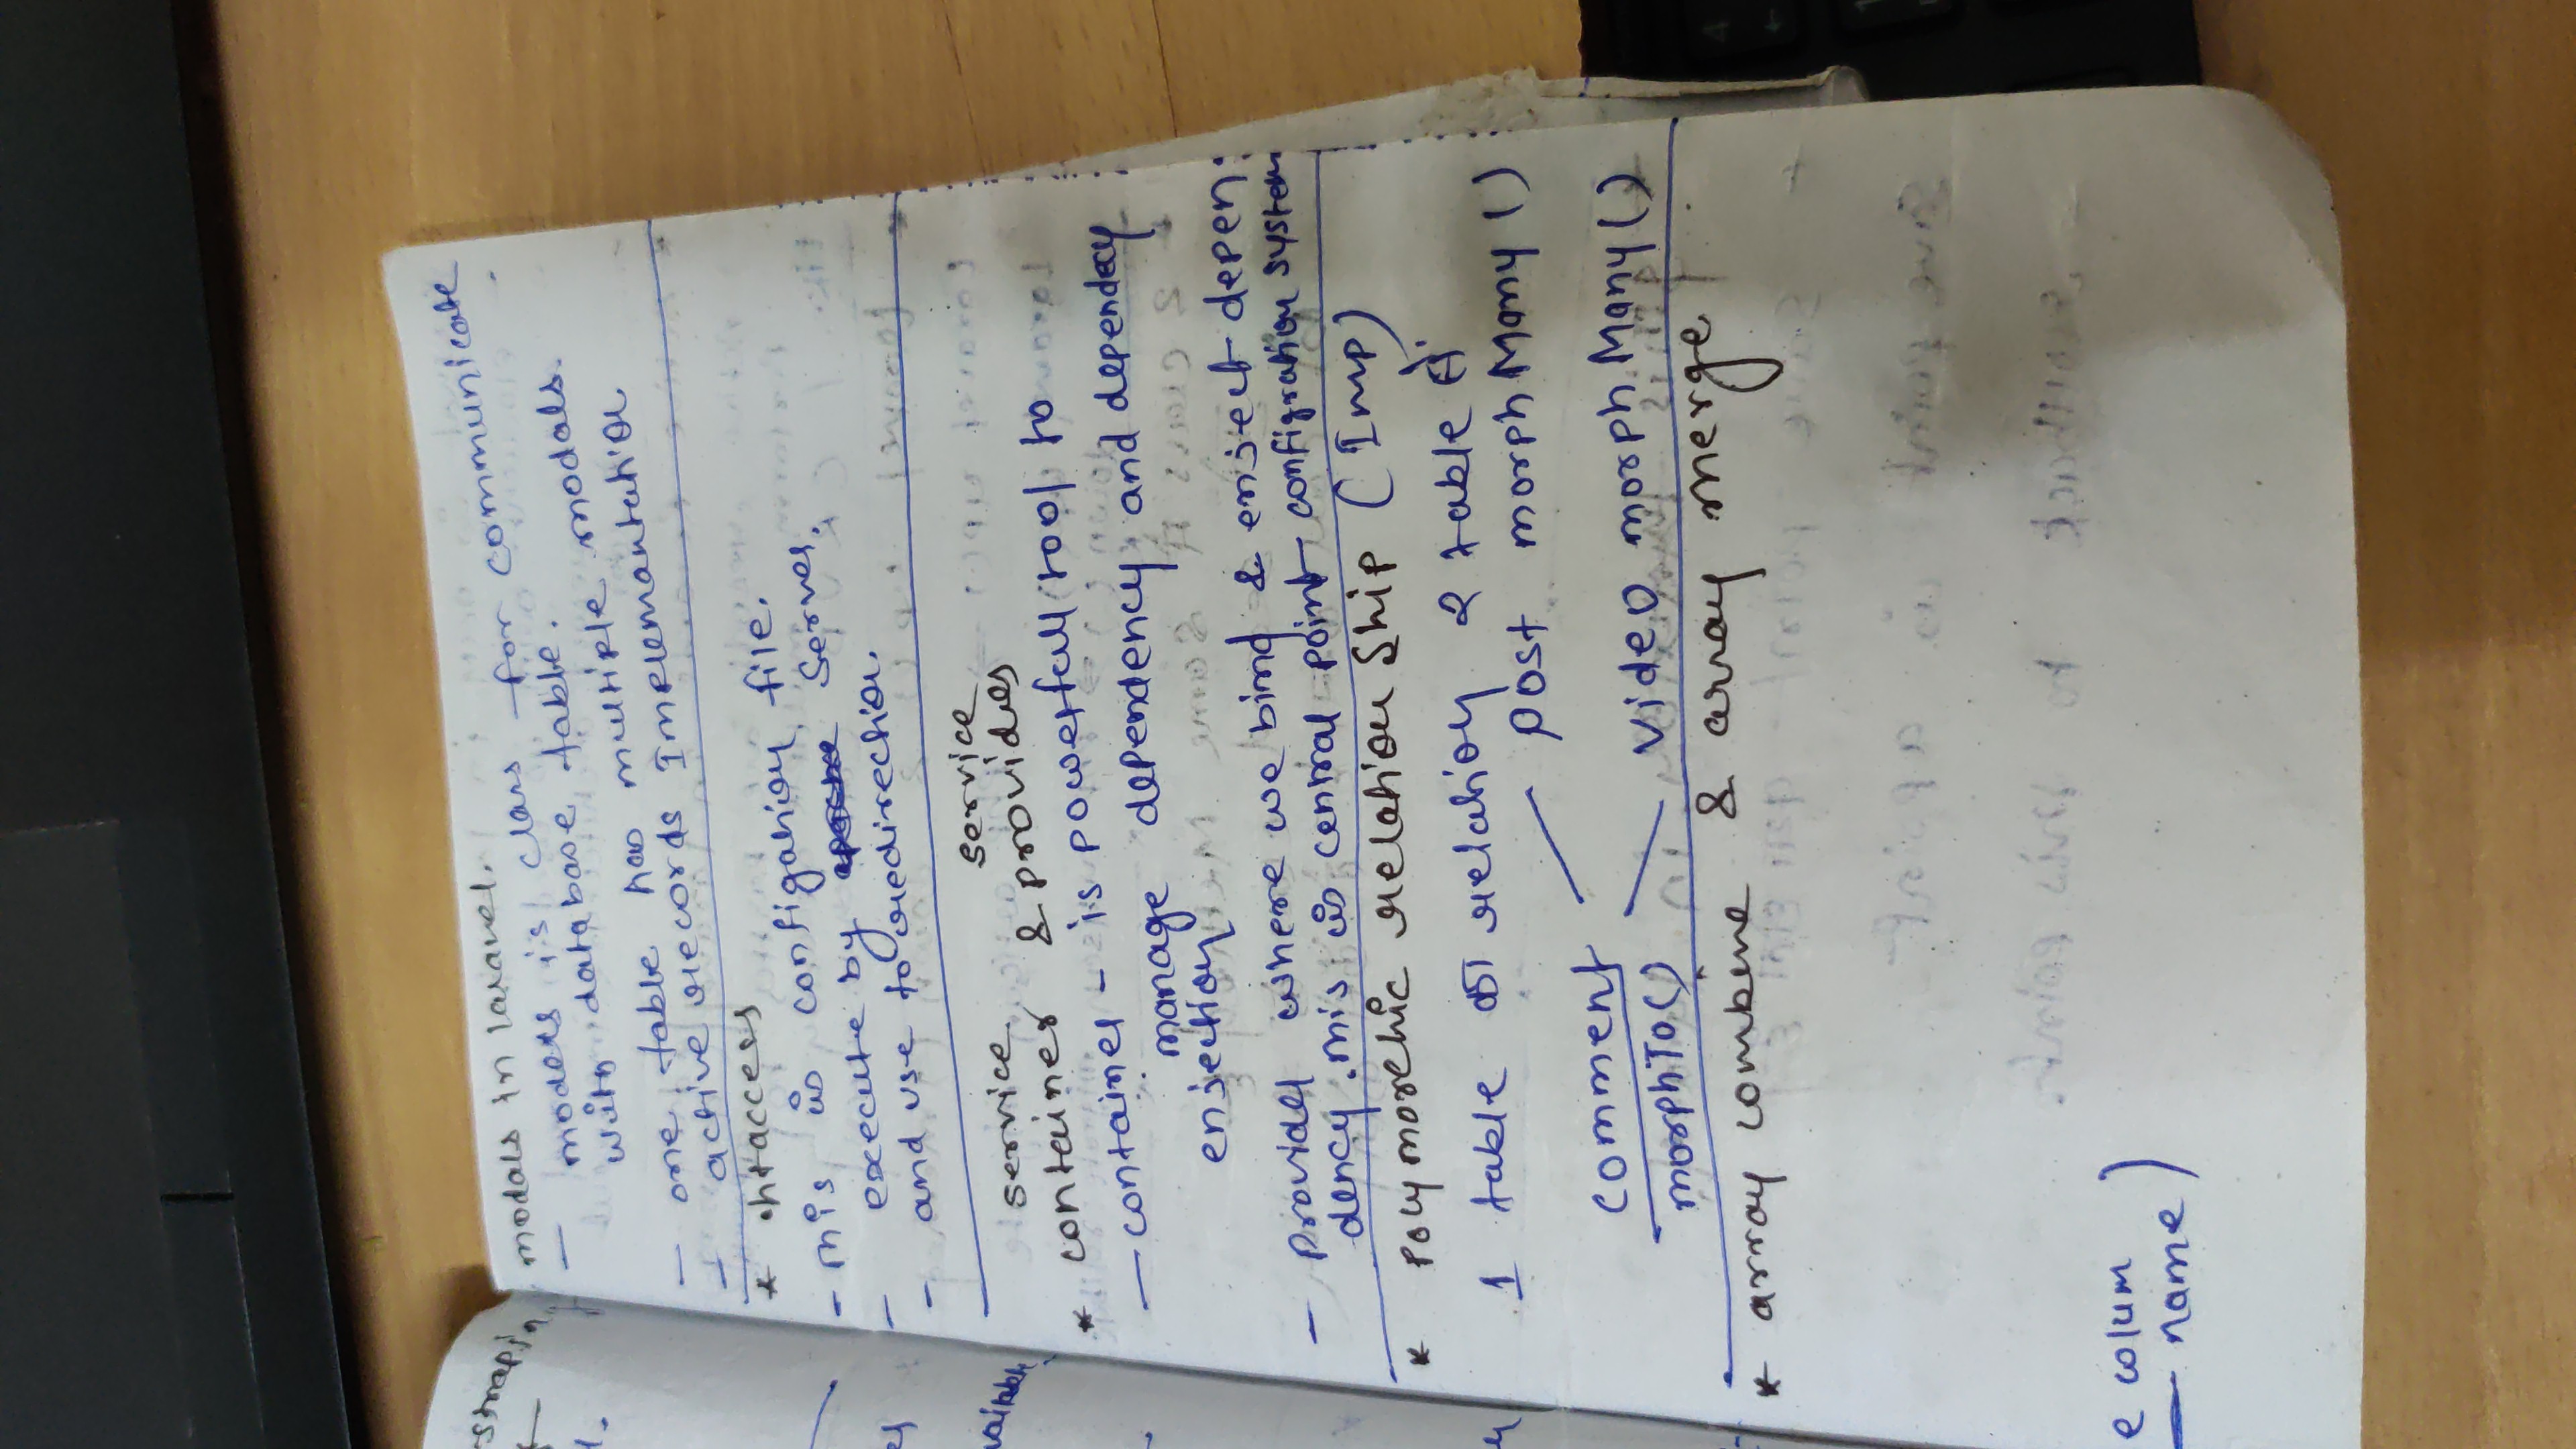 modals in laravel.
— models is class for communicate
with database table.
— one table has multiple modals.
— active records Implemantation
* .htaccess
- This is configation file.
- execute by Server.
- and use to redirection.
service service
* container & provider
— container - is powerfull tool to
manage dependency and dependecy
enjection
- provider where we bind & enject depen:
dency. This is central point configration system
* Polymorehic relation Ship (Imp)
1 table का relation 2 table से
Post morphMany()
comment
morphTo()
video morphMany()
* array combine & array merge
e colum
— name)